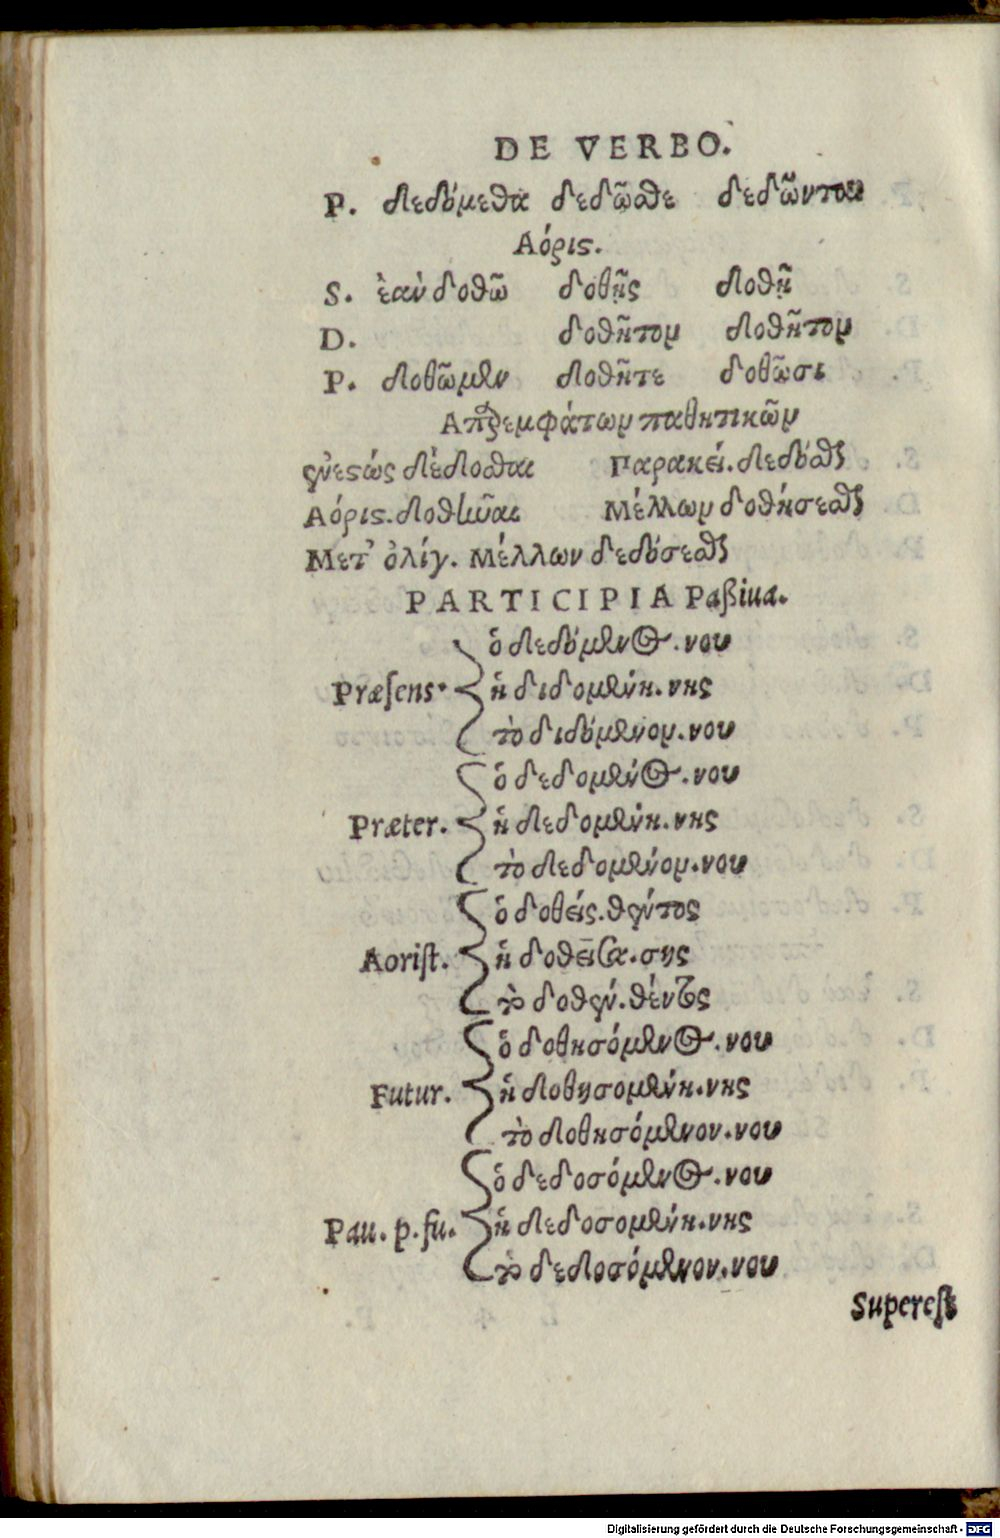 DE VERBO.
P. δεδόμεθα δεδῶσθε δεδῶνται
Αόρις.
S. ἐὰν δοθῶ δοθῇς δοθῇ
D. δοθῆτον δοθῆτον
P. δοθῶμεν δοθῆτε δοθῶσι
Απαρεμφάτων παθητικῶν
ἐνεστώς δίδοσθαι Παρακεί. δεδόσθαι
Αόρις. δοθῆναι Μέλλων δοθήσεσθαι
Μετ' ὀλίγ. Μέλλων δεδόσεσθαι
PARTICIPIA Paßiua.
ὁ δεδόμενος. νου
Præsens. ἡ διδομένη. νης
τὸ διδόμενον. νου
ὁ δεδομένος. νου
Præter. ἡ δεδομένη. νης
τὸ δεδομένον. νου
ὁ δοθείς. θέντος
Aorist. ἡ δοθεῖσα. σης
τὸ δοθέν. θέντος
ὁ δοθησόμενος. νου
Futur. ἡ δοθησομένη. νης
τὸ δοθησόμενον. νου
ὁ δεδοσόμενος. νου
Pau. p. fu. ἡ δεδοσομένη. νης
τὸ δεδοσόμενον. νου
Superest
Digitalisierung gefördert durch die Deutsche Forschungsgemeinschaft - DFG